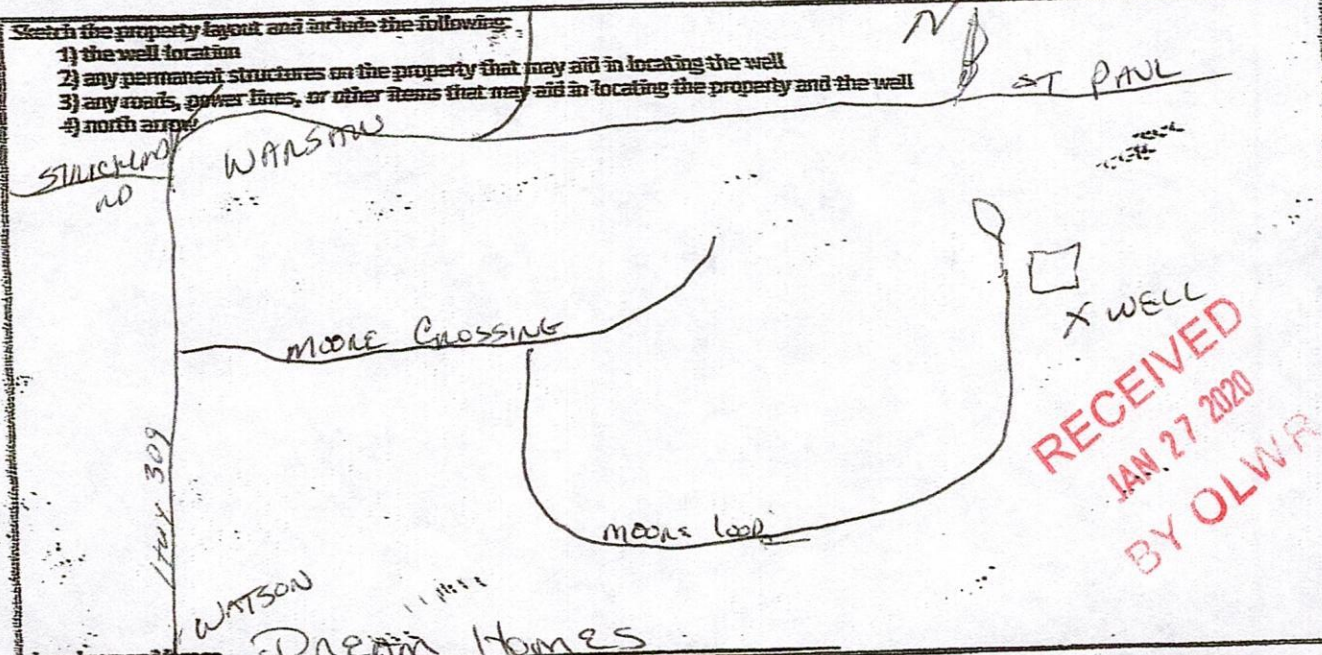 Sketch the property layout and include the following:
1) the well location
2) any permanent structures on the property that may aid in locating the well
3) any roads, power lines, or other items that may aid in locating the property and the well
4) north arrow
N
ST PAUL
WARSAW
RD
X WELL
MOORE CROSSING
RECEIVED
JAN 27 2020
BY OLWR
HWY 309
MOORE LOOP
WATSON
DREAM HOMES